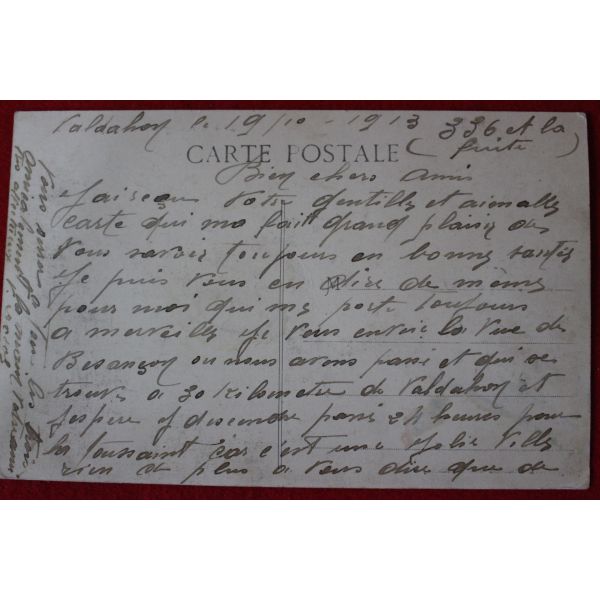 Valdahon le 19/10 - 1913 336 et la
(fuite)
CARTE POSTALE
Bien chers amis
Jai recu Votre gentille et aimable
carte qui ma fait grand plaisir de
Vous savoir toujours en bonne santée
Je puis vous en dire de même
pour moi qui me porte toujours
a merveille Je Vous envoie la Vue de
Besançon ou nous avons passé et qui se
trouve a 30 Kilometre de Valdahon et
Jespere y descendre passé 24 heures pour
la Toussaint car c'est une Jolie Ville
rien de plus a Vous dire que de